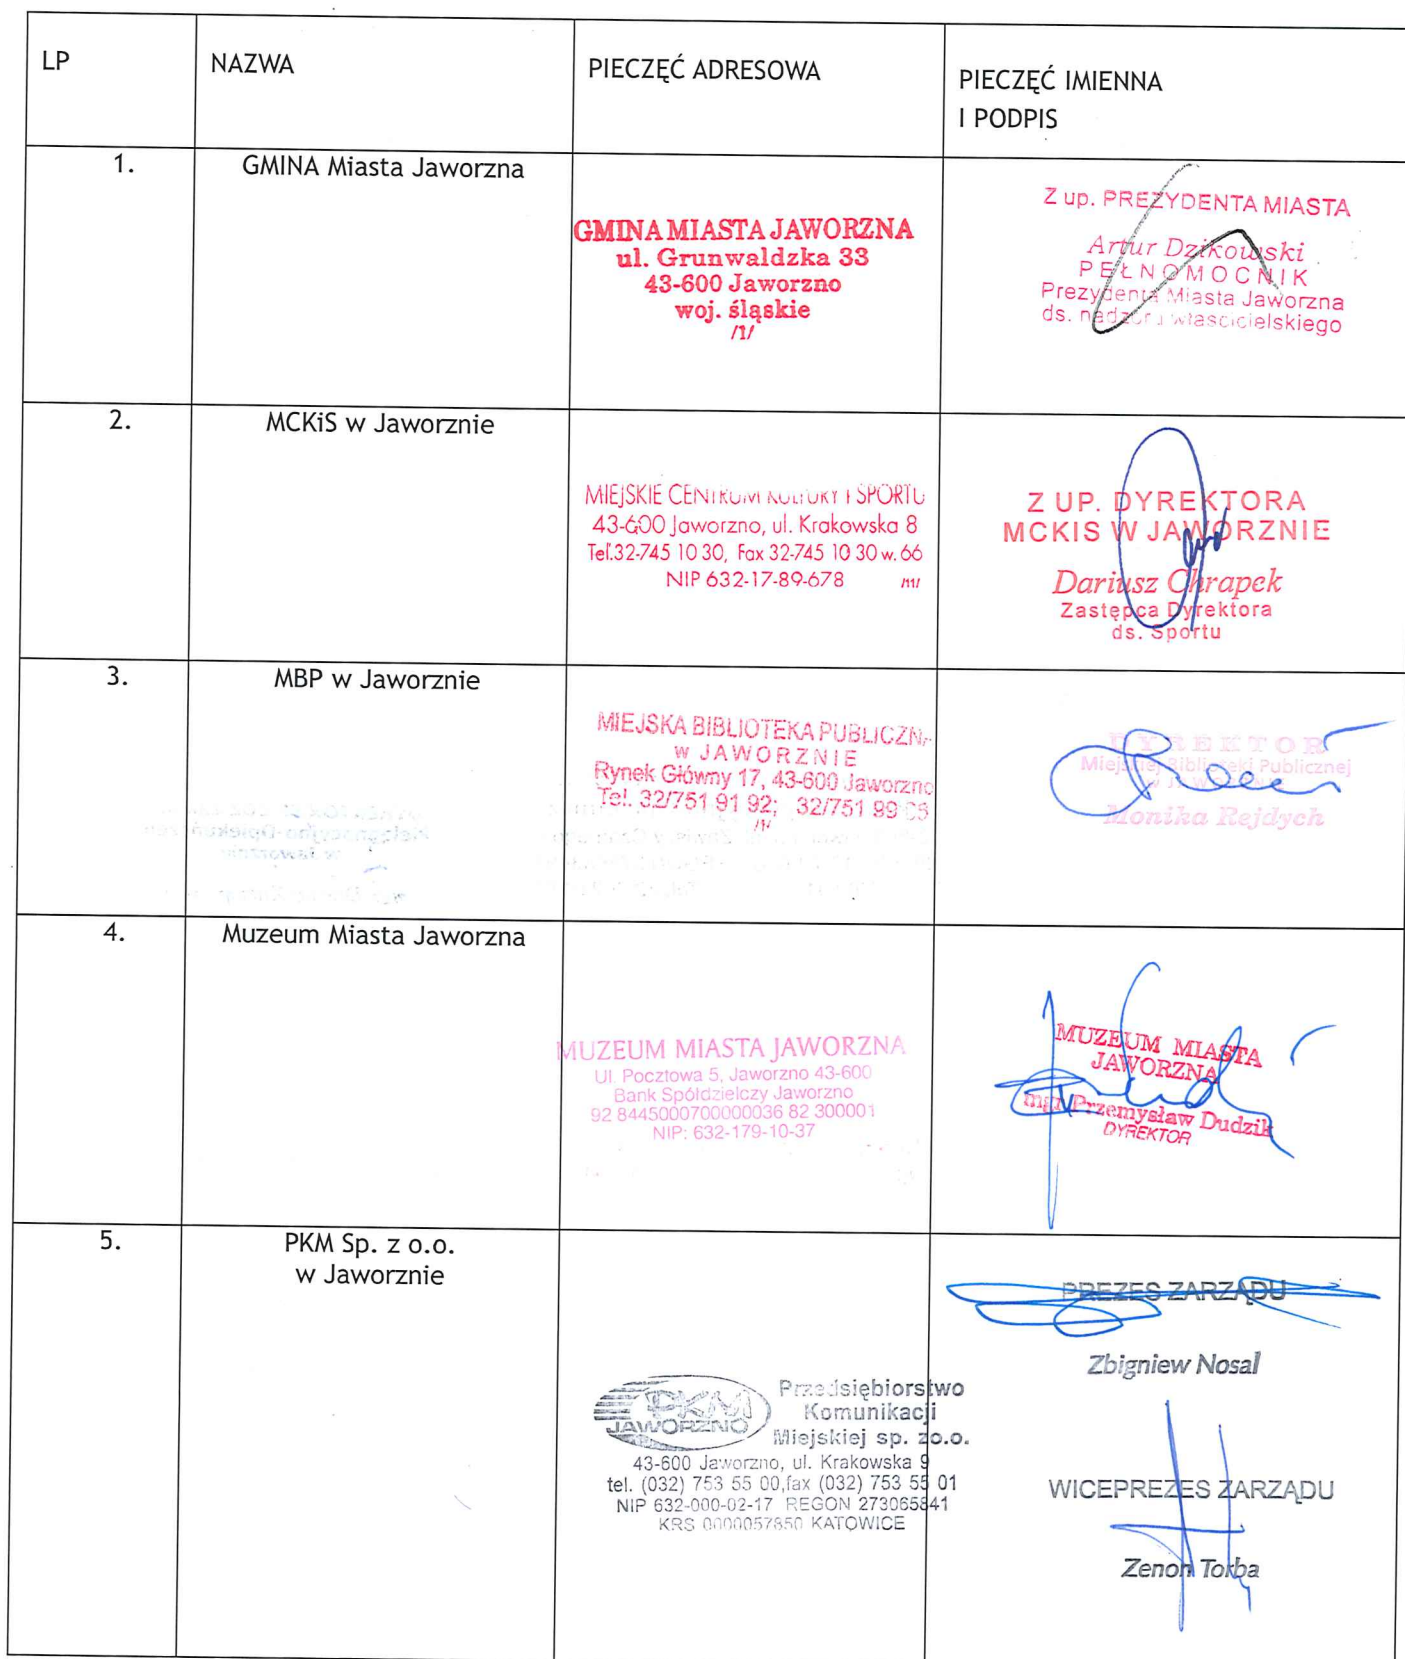 LP
NAZWA
PIECZĘĆ ADRESOWA
PIECZĘĆ IMIENNA
I PODPIS
1.
GMINA Miasta Jaworzna
GMINA MIASTA JAWORZNA
ul. Grunwaldzka 33
43-600 Jaworzno
woj. śląskie
/1/
Z up. PREZYDENTA MIASTA
Artur Dzikowski
PEŁNOMOCNIK
Prezydenta Miasta Jaworzna
ds. nadzoru właścicielskiego
2.
MCKiS w Jaworznie
MIEJSKIE CENTRUM KULTURY I SPORTU
43-600 Jaworzno, ul. Krakowska 8
Tel.32-745 10 30, Fax 32-745 10 30 w. 66
NIP 632-17-89-678 /11/
Z UP. DYREKTORA
MCKIS W JAWORZNIE
Dariusz Chrapek
Zastępca Dyrektora
ds. Sportu
3.
MBP w Jaworznie
MIEJSKA BIBLIOTEKA PUBLICZNA
w JAWORZNIE
Rynek Główny 17, 43-600 Jaworzno
Tel. 32/751 91 92; 32/751
/1/
DYREKTOR
Miejskiej Biblioteki Publicznej
Monika Rejdych
4.
Muzeum Miasta Jaworzna
MUZEUM MIASTA JAWORZNA
Ul. Pocztowa 5, Jaworzno 43-600
Bank Spółdzielczy Jaworzno
92 8445000700000036 82 300001
NIP: 632-179-10-37
MUZEUM MIASTA
JAWORZNA
mgr Przemysław Dudzik
DYREKTOR
5.
PKM Sp. z o.o.
w Jaworznie
PKM
JAWORZNO
Przedsiębiorstwo
Komunikacji
Miejskiej sp. zo.o.
43-600 Jaworzno, ul. Krakowska 9
tel. (032) 753 55 00,fax (032) 753 55 01
NIP 632-000-02-17 REGON 273065841
KRS 0000057850 KATOWICE
PREZES ZARZĄDU
Zbigniew Nosal
WICEPREZES ZARZĄDU
Zenon Torba